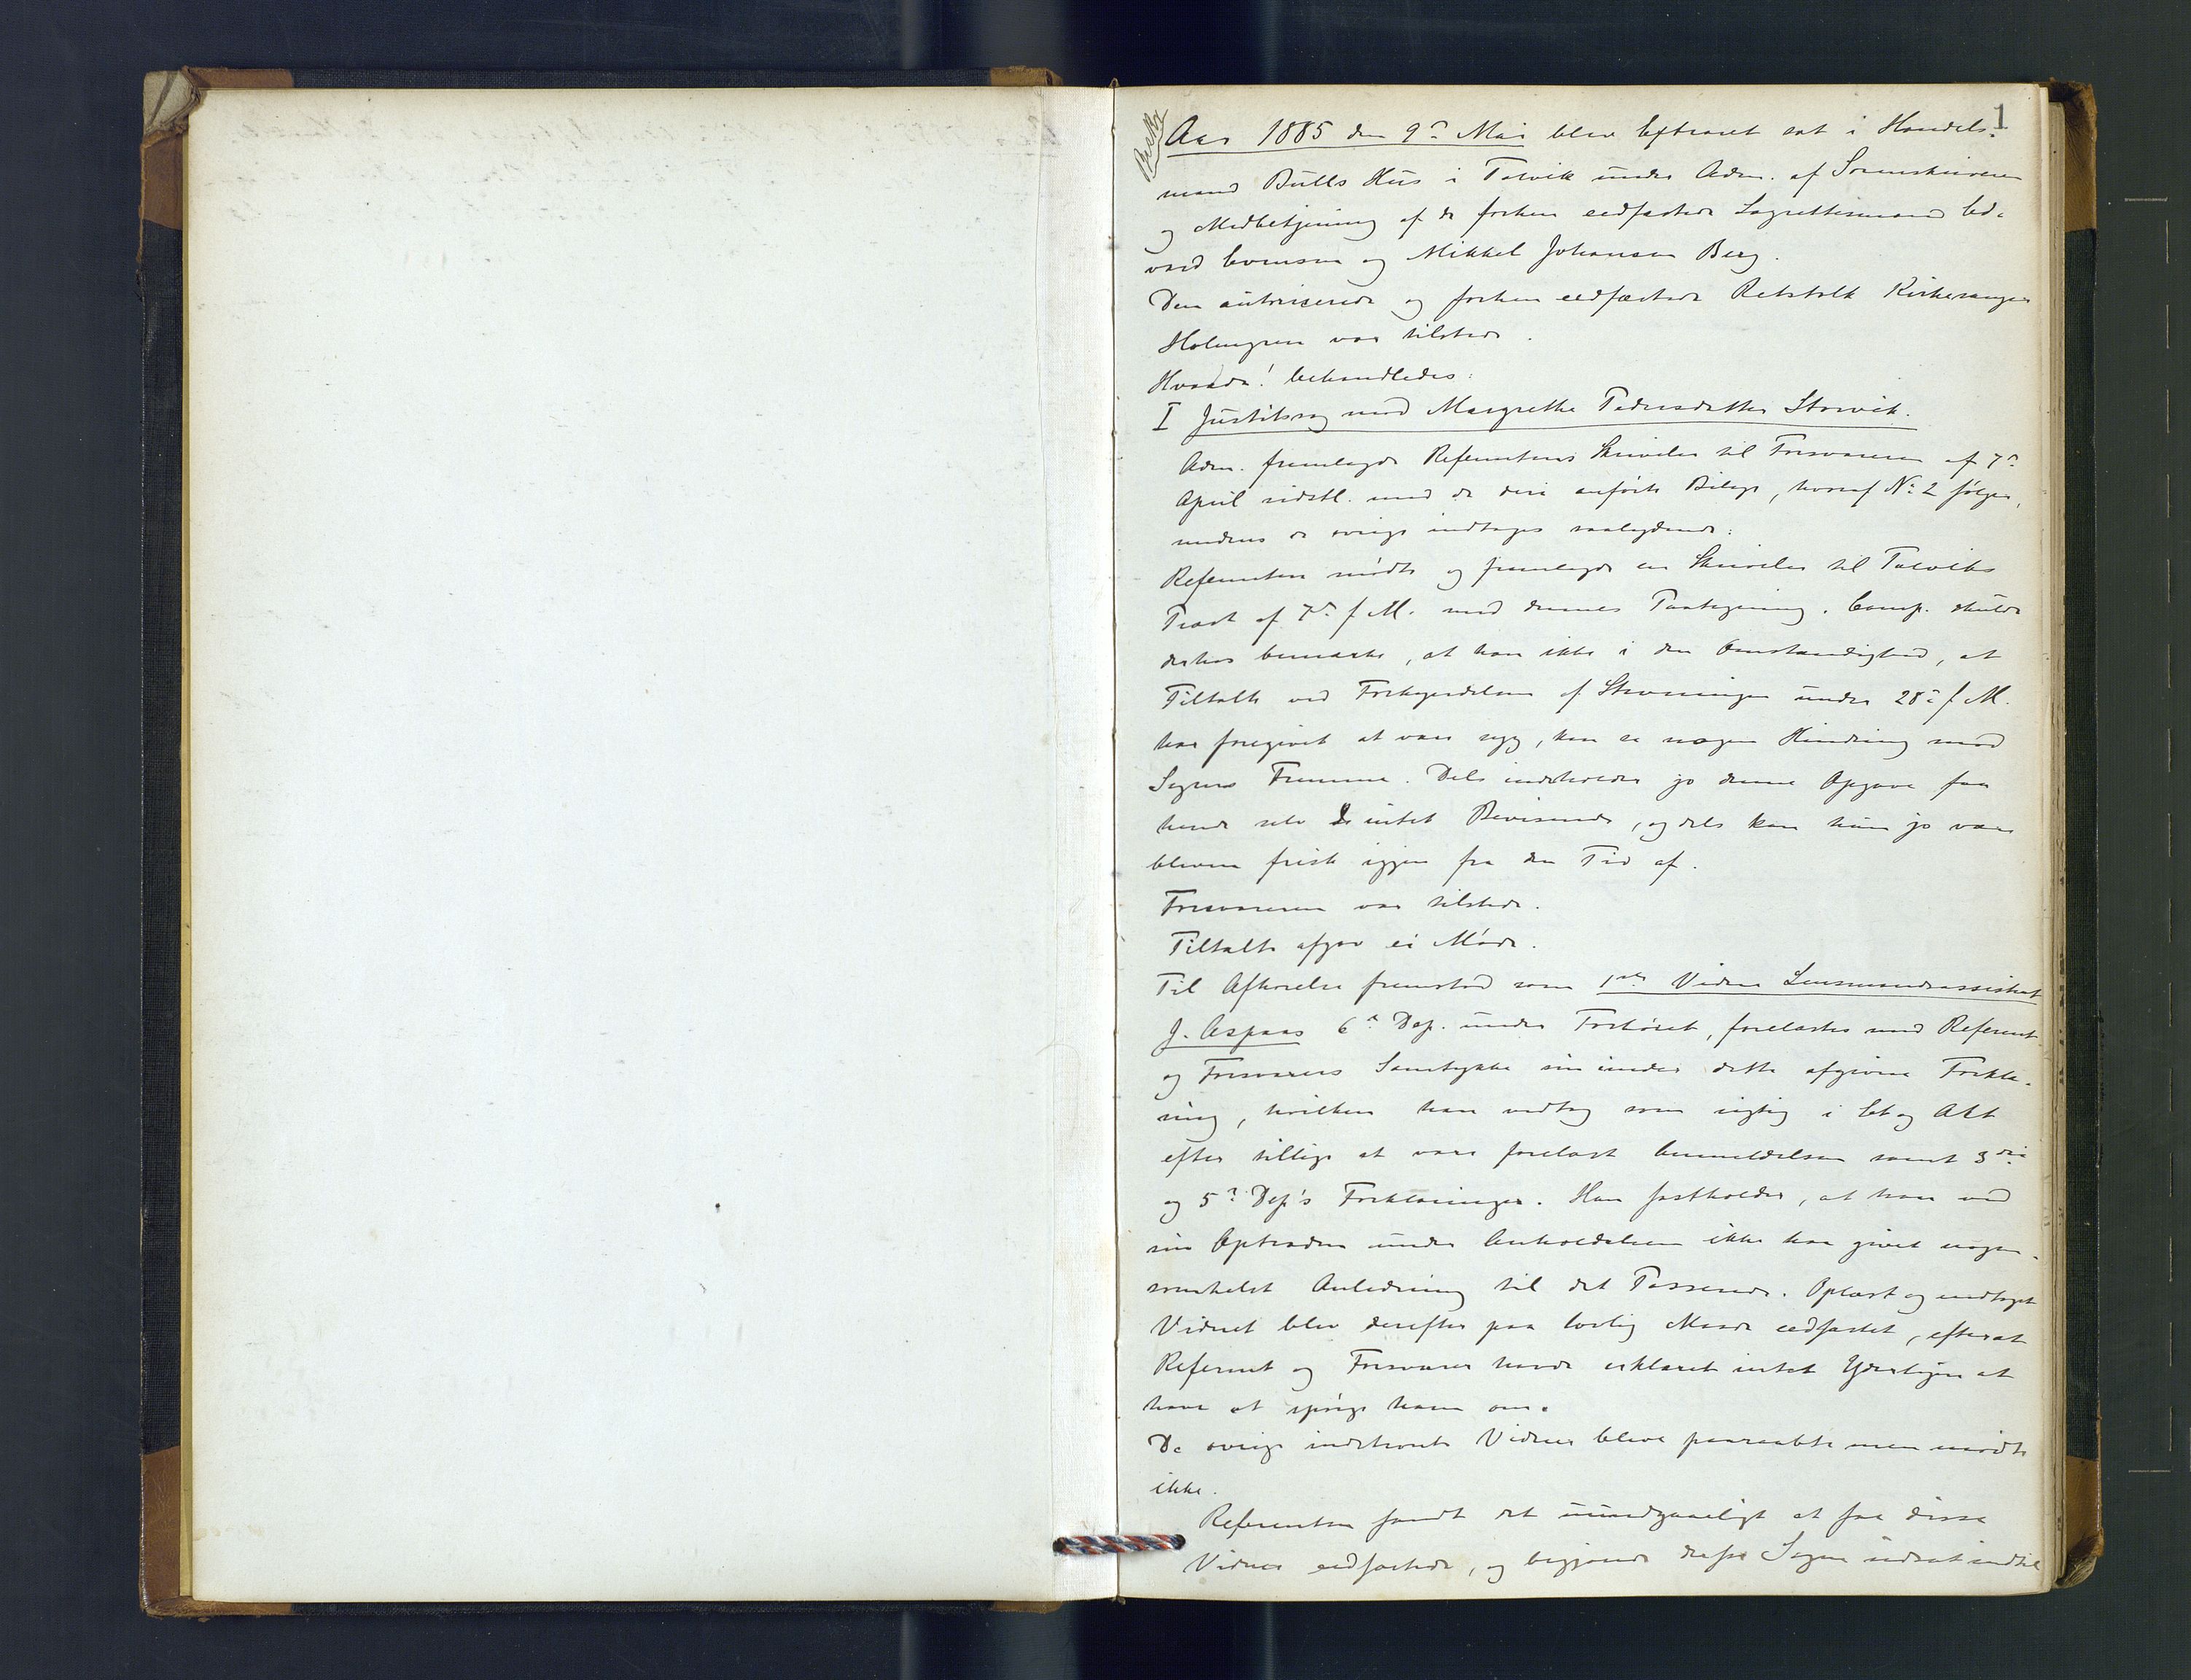 1
Beskr
Aar 1885 den 9de Mai blev Extraret sat i Handels-
mand Bulls Hus i Talvik under Adm. af Sorenskriveren
og Medbetjening af de forhen eedfæstede Lagrettesmænd Ed-
vard Evensen og Mikkel Johansen Berg.
Den autoriserede og forhen eedfæstede Retstolk Kirkesanger
Holmgren var tilstede.
Hvorda! behandledes:
I Justitssag mod Margrethe Pedersdatter Storvik.
Adm. fremlagde Referentens Skrivelse til Forsvareren af 7de
April sidstl. med de deri anførte Bilage, hvoraf No 2 følger,
medens de øvrige indtages saalydende:
Referenten mødte og fremlagde en Skrivelse til Talviks
Præst af 7de f. M. med dennes Paategning. Comp. skulde
derhos bemærke, at han ikke i den Omstændighed, at
Tiltalte ved Forkyndelsen af Stevningen under 28de f. M.
har foregivet at være syg, kan se nogen Hindring mod
Sagens Fremme. Dels indeholder jo denne Opgave fra
hende selv intet Bevisende, og dels kan hun jo være
bleven frisk igjen fra den Tid af.
Forsvareren var tilstede.
Tiltalte afgav ei Møde.
Til Afhørelse fremstod som 1ste Vidne Lensmandsassistent
J. Aspaas 6te Dep. under Forhøret, forelæstes med Referent
og Forsvarers Samtykke sin under dette afgivne Forkla-
ring, hvilken han vedtog som rigtig i Et og Alt
efter tillige at være forelæst Anmeldelsen samt 3die
og 5te Dep's Forklaringer. Han fastholder, at han ved
sin Optræden under Anholdelsen ikke har givet nogen-
somhelst Anledning til det Passerede. Oplæst og vedtaget
Vidnet blev derefter paa lovlig Maade eedfæstet, efterat
Referent og Forsvarer havde erklæret intet Yderligere at
have at spørge ham om.
De øvrige indstevnte Vidner bleve paaraabte men mødte
ikke.
Referenten fandt det uundgaaeligt at faa disse
Vidner eedfæstede, og begjærede derfor Sagen udsat indtil